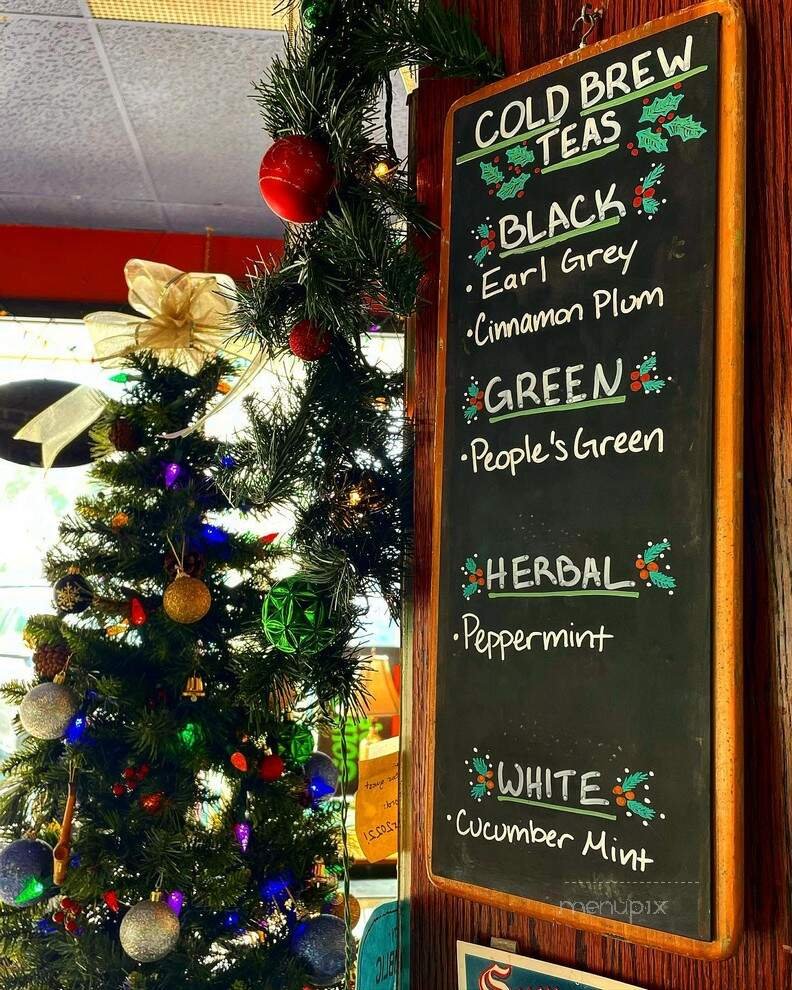 COLD BREW
TEAS
BLACK
• Earl Grey
• Cinnamon Plum
GREEN
• People's Green
HERBAL
• Peppermint
WHITE
• Cucumber Mint
menupix
2022!